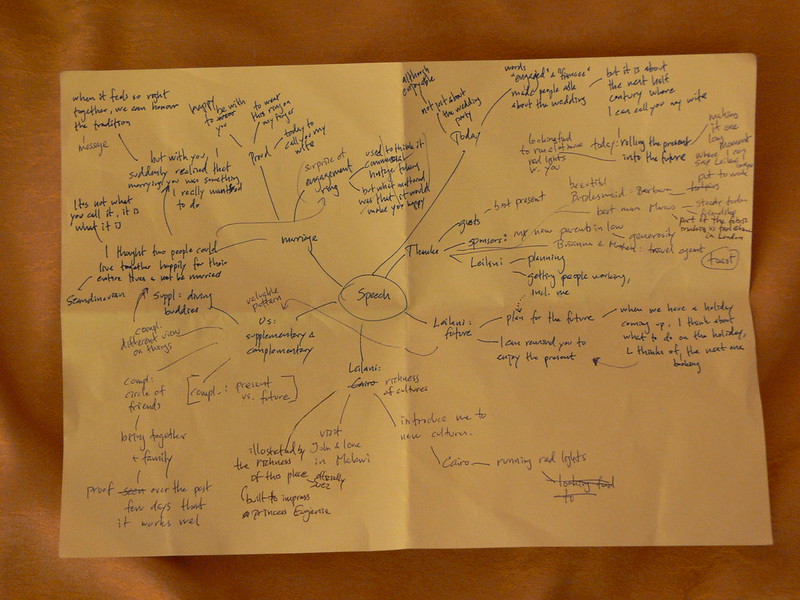 when it feels so right
together, we can honour
the tradition
message
but with you, I
suddenly realized that
marrying you was something
I really wanted
to do
It's not what
you call it, it is
what it is
I thought two people could
love together happily for their
entire lives & not be married
Scandinavian
happy
to
be with
you
to wear
this ring on
my finger
Proud
today to
call you my
wife
surprise of
engagement
ring
used to think it
commercial
but what mattered
was that it would
make you happy
marriage
although
enjoyable
not just about
the wedding
party
Today
words
"engaged" & "fiancee"
made people ask
about the wedding
but it is about
the next half
century where
I can call you my wife
red lights
w. you
today: rolling the present
into the future
making
it one
long
moment
put to work
Thanks
guests
best present
beautiful
Bridesmaid: Barbara
best man Marcus
friendship
in London
sponsors: my new parents in law
generosity
travel agent
toast
Leilani
planning
getting people working,
incl. me
Speech
Leilani:
future
plan for the future
I can remind you to
enjoy the present
when we have a holiday
coming up, I think about
what to do on the holiday,
L thinks of, the next one
booking
valuable
pattern
Us:
supplementary &
complementary
Suppl: diving
buddies
compl:
different view
on things
compl:
circle of
friends
bring together
+ family
proof seen over the past
few days that
it works well
[compl.: present
vs. future]
Leilani:
Cairo richness
of cultures
illustrated by
the richness
of this place
built to impress
princess Eugenie
visit
John & Lone
in Malawi
introduce me to
new cultures.
Cairo
running red lights
looking
to